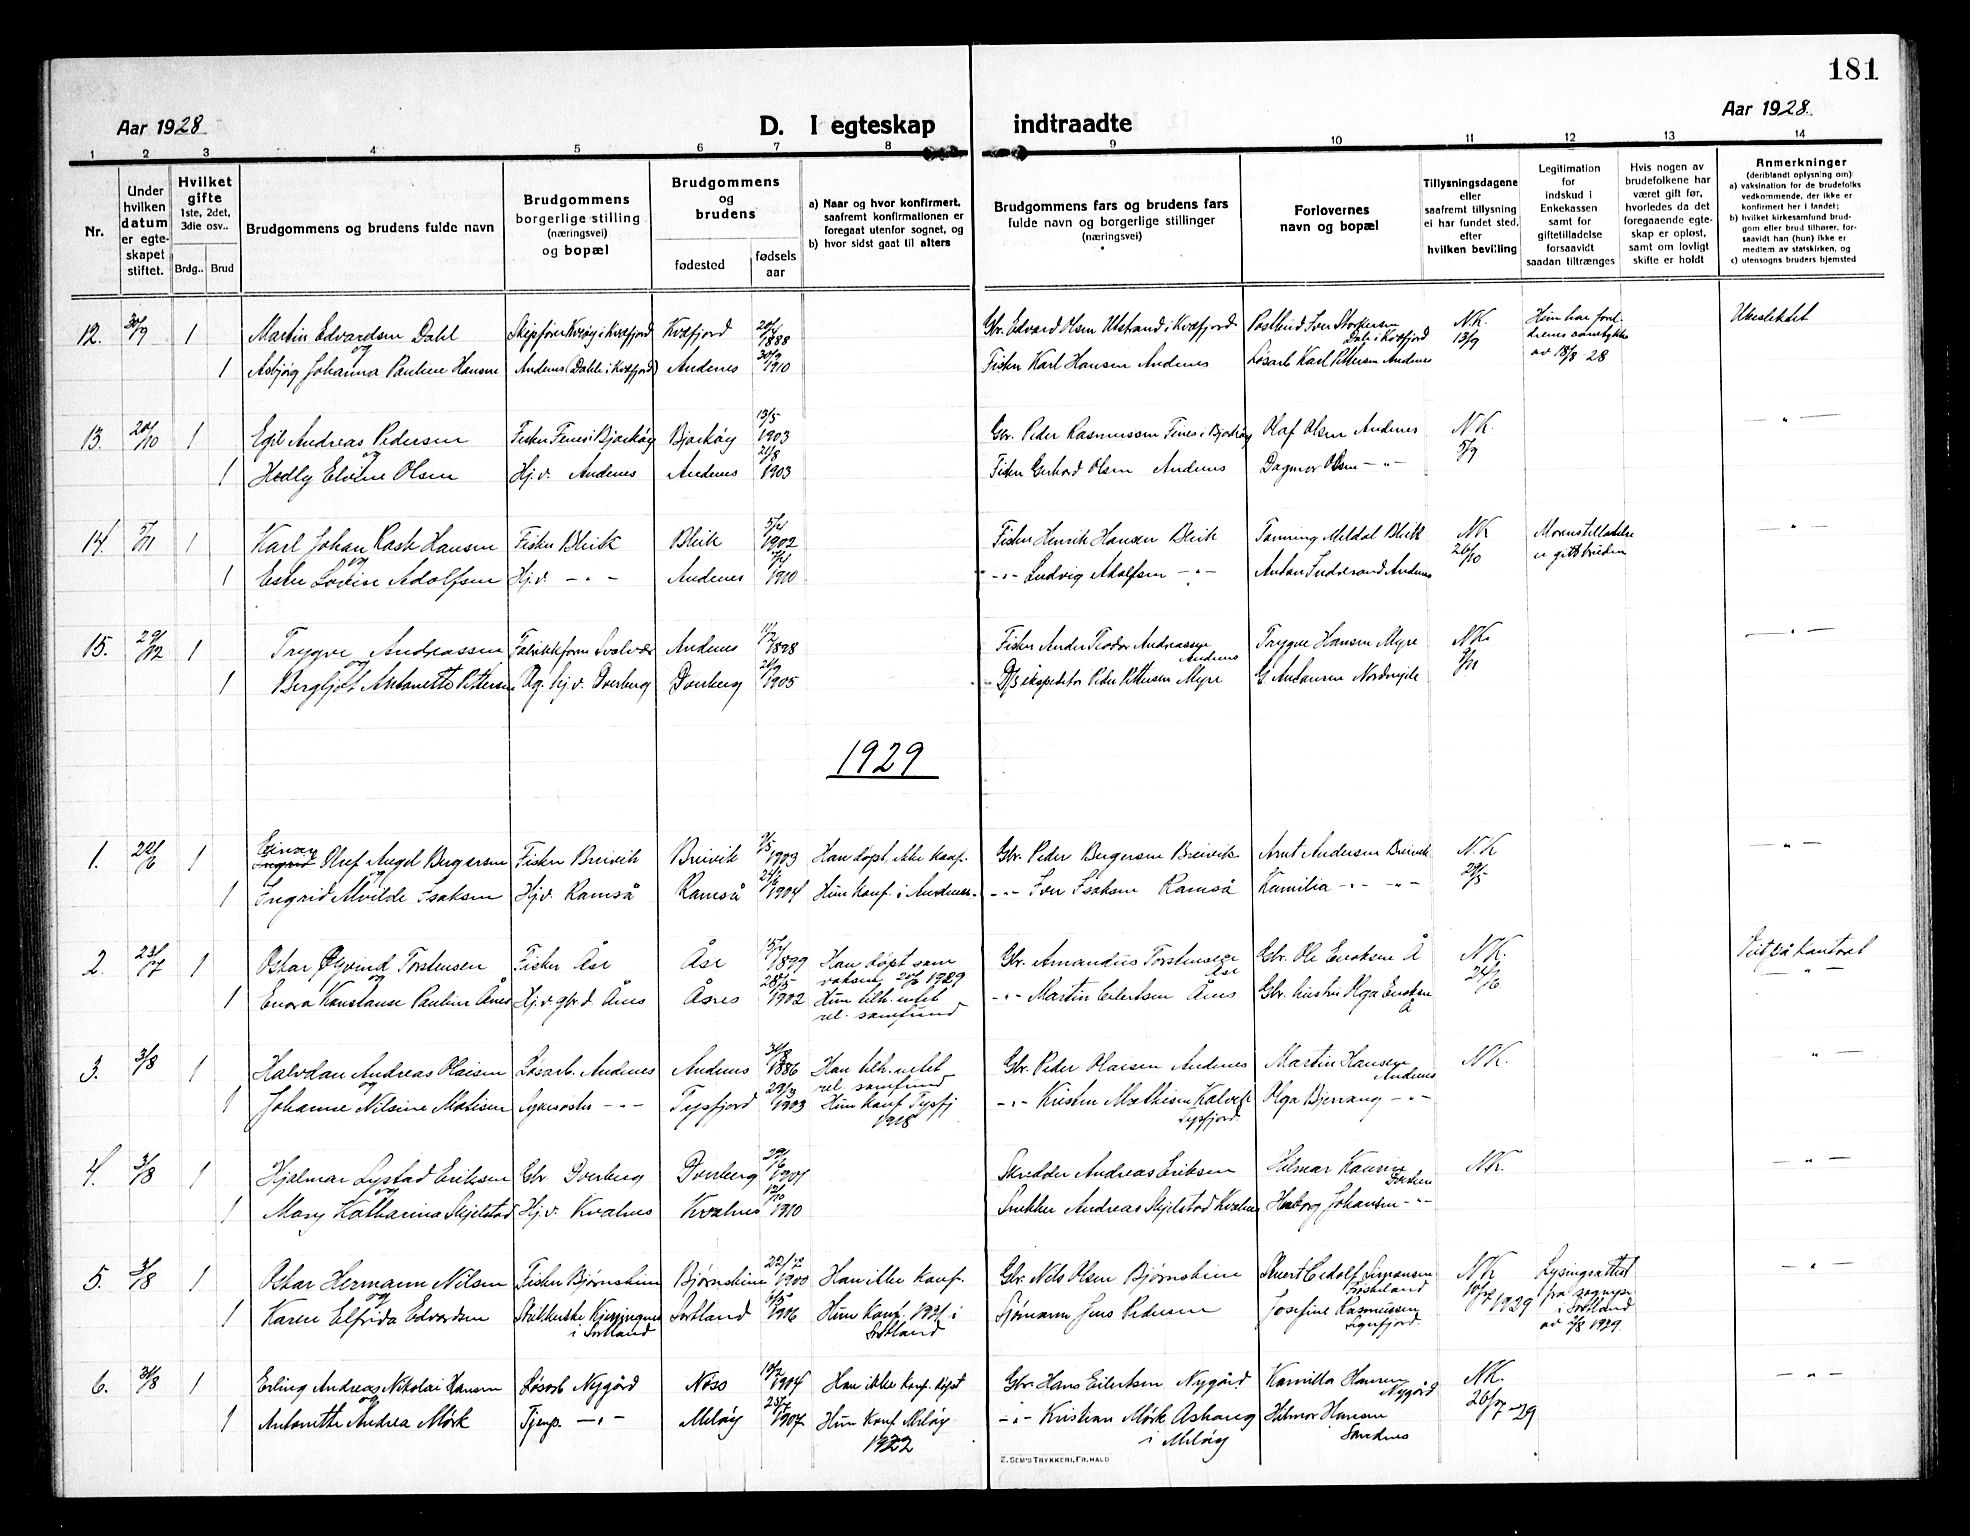 181
Aar 1928
D. I egteskap indtraadte
Aar 1928.
1 2 3 4 5 6 7 8 9 10 11 12 13 14
Nr.
Under hvilken datum er egteskapet stiftet.
Hvilket gifte 1ste, 2det, 3die osv..
Brdg.. Brud
Brudgommens og brudens fulde navn
Brudgommens borgerlige stilling (næringsvei) og bopæl
Brudgommens og brudens
fødested
fødsels aar
a) Naar og hvor konfirmert, saafremt konfirmationen er foregaat utenfor sognet, og
b) hvor sidst gaat til alters
Brudgommens fars og brudens fars fulde navn og borgerlige stillinger (næringsvei)
Forlovernes navn og bopæl
Tillysningsdagene eller saafremt tillysning ei har fundet sted, efter hvilken bevilling
Legitimation for indskud i Enkekassen samt for giftetilladelse forsaavidt saadan tiltrænges
Hvis nogen av brudefolkene har været gift før, hvorledes da det foregaaende egteskap er opløst, samt om lovligt skifte er holdt
Anmerkninger (deriblandt oplysning om)
a) vaksination for de brudefolks vedkommende, der ikke er konfirmert her i landet;
b) hvilket kirkesamfund brudgom eller brud tilhører, forsaavidt han (hun) ikke er medlem av statskirken, og
c) utensogns bruders hjemsted
12. 30/9 1 Martin Edvardsen Dahl Skipsfører Kvæfjord 20/4 1888 Gbr. Edvard Olsen Utstrand i Kvæfjord N.K. 13/9 Hun har foreldrenes samtykke av 18/8 28 Ubeslektet
og
1 Asbjørg Johanna Pauline Hansen Andenes (Dahle i Kvæfjord) Andenes 30/9 1910 Fisker Karl Hansen Andenes Løsarb Karl Pettersen Andenes
13. 20/10 1 Egil Andreas Pedersen Fisker Fenes i Bjarkøy Bjarkøy 13/5 1903 Gbr. Peder Rasmussen Fenes i Bjarkøy Olaf Olsen Andenes N.K. 5/9 - " -
og
1 Hedly Elvine Olsen Hj.v. Andenes Andenes 21/8 1903 Fisker Gerhard Olsen Andenes Dagmar Olsen - " -
14. 5/11 1 Karl Johan Rask Hansen Fisker Bleik Bleik 5/4 1902 Fisker Henrik Hansen Bleik Meldal Bleik N.K. 26/10 Morens tilladelse er gitt bruden - " -
og
1 Ester Lovise Adolfsen Hj.v. - " - Andenes 1910 - " - Ludvig Adolfsen - " - Anton Andenes
15. 29/12 1 Trygve Andreassen Fabrikkform Svolvær Andenes 1898 Fisker Teodor Andreassen Andenes Trygve Hansen Myre N.K. - " -
og
1 Bergljot Antonette Pettersen Hj.v. Dverberg Dverberg 1905 D/s ekspeditør Peder Pettersen Myre G Antonsen
1929
1. 22/6 1 Einar Olaf Angel Bergersen Fisker Breivik Breivik 9/5 1903 Han døpt, ikke konf. Gbr. Peder Bergersen Breivik Arnt Andersen Breivik N.K. 29/5 - " -
og
1 Ingrid Alvilde Isaksen Hj.v. Ramså Ramså 1904 Hun konf. i Andenes - " - Iver Isaksen Ramså Kamilia - " - - " -
2. 23/7 1 Oskar Øyvind Torstensen Fisker Åse Åse 15/4 1899 Han døpt som voksen 20/6 1929 Gbr. Amandus Torstensen Åse Gbr. Ole Enoksen Å N.K. 24/6 Viet på kontoret
og
1 Enora Konstanse Pauline Ånes Hj.v. gbr.d. Ånes Åsnes 28/5 1902 Hun tilh. intet rel. samfund - " - Martin Eilertsen Ånes Gbr. hustru Olga Enoksen Å - " -
3. 3/8 1 Halvdan Andreas Olaisen Løsarb. Andenes Andenes 30/8 1886 Han tilh. intet rel. samfund Gbr. Peder Olaisen Andenes Martin Hansen Andenes N.K. - " -
og
1 Johanne Nilsine Matisen Sykesøster - " - Tysfjord 29/3 1903 Hun konf Tysfj 1918 - " - Kristen Mathisen Kalvik Tysfjord. Olga Bjerrang - " -
4. 3/8 1 Hjalmar Lystad Eriksen Gbr Dverberg Dverberg 1901 Skredder Andreas Eriksen Hilmar N.K. - " -
og
1 Mary Katharina Skjelstad Hj.v. Kvalnes Kvalnes 12/10 1910 Snekker Andreas Skjelstad Kvalnes Johansen - " -
5. 3/8 1 Oskar Hermann Nilsen Fisker Bjørnskinn Bjørnskinn 22/12 1900 Han ikke konf. Gbr. Nils Olsen Bjørnskinn N.K. 10/7 1929 Lysingsattest fra sognepr. i Sortland av 2/8 1929. - " -
og
1 Karen Elfrida Edvardsen i Sortland Sortland 6/5 1906 Hun konf 1921 i Sortland Sjømann Jens Pedersen Josefine Rasmussen Sigerfjord.
6. 31/8 1 Erling Andreas Nikolai Hansen Løsarb Nygård Nøss 10/2 1904 Han ikke konf. døpt Gbr. Hans Eilertsen Nygård Kamilla Hansen Nygård N.K. 20/7 - 29 - " -
og
1 Antonette Andrea Mørk Tjenp. - " - Meløy 25/7 1907 Hun konf Meløy 1922 - " - Kristian Mørk i Meløy Hilmar Hansen Sandnes
E. SEM'S TRYKKERI, FR.HALD